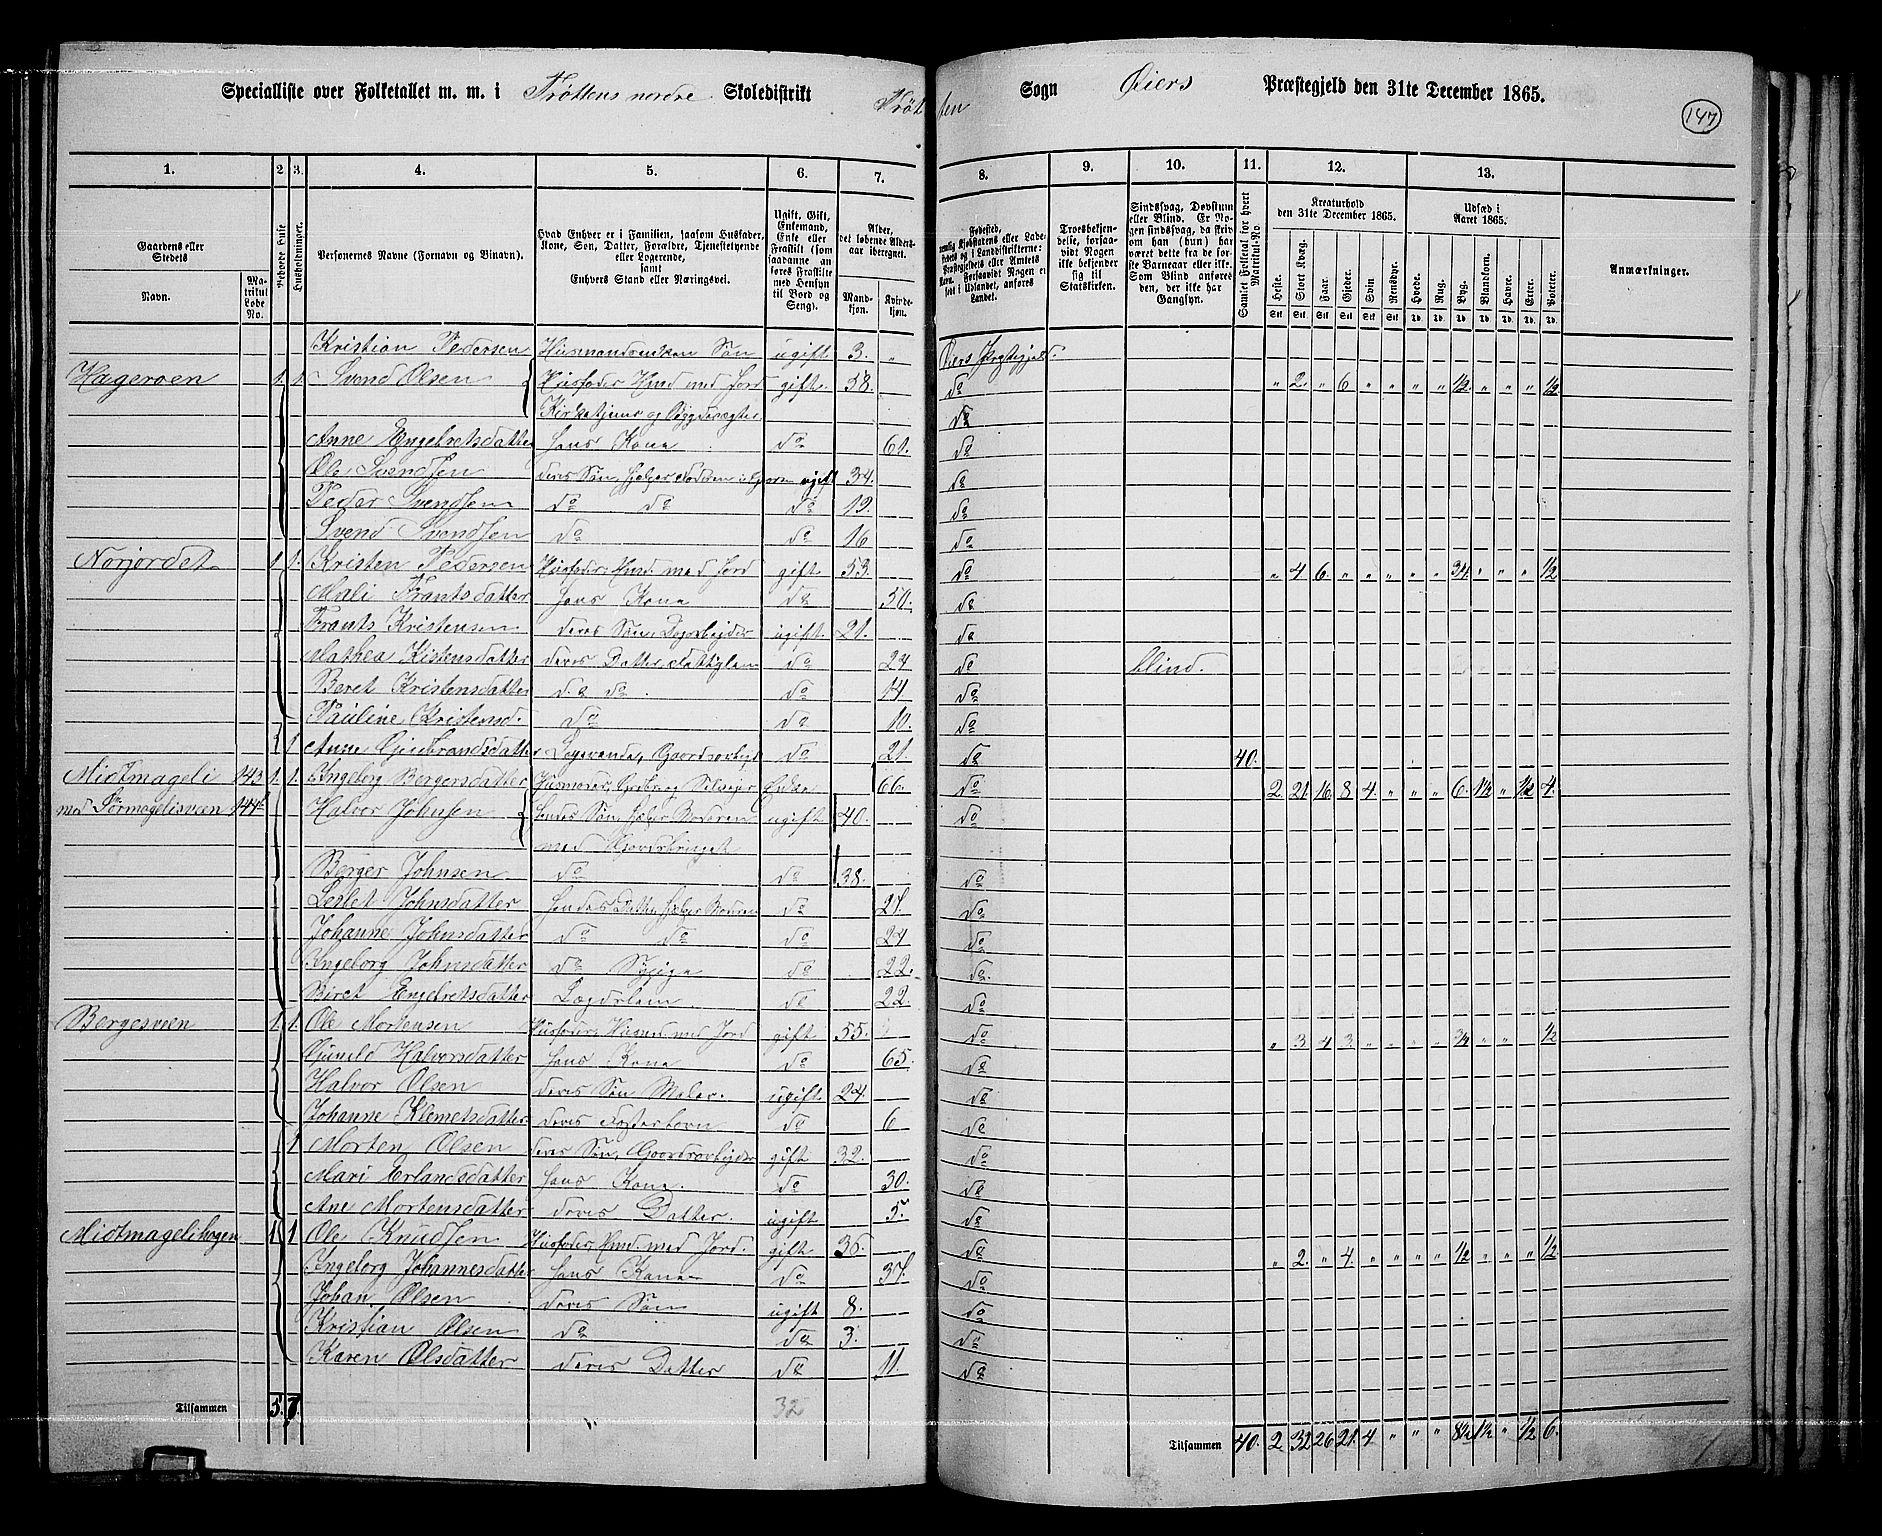 Specialliste over Folketallet m. m. i Trøttens nordre Skoledistrikt Trøtten Sogn Øiers Præstegjeld den 31te December 1865.
147
1. 2. 3. 4. 5. 6. 7. 8. 9. 10. 11. 12. 13.
Gaardens eller Stedets
Navn.
Matrikul Løbe No.
Beboede Huse
Husholdninger.
Personernes Navne (Fornavn og Binavn).
Hvad Enhver er i Familien, saasom Husfader, Kone, Søn, Datter, Forældre, Tjenestetyende eller Logerende, samt Enhvers Stand eller Næringsvei.
Ugift, Gift, Enkemand, Enke eller Fraskilt (som saadanne anføres Fraskilte med Hensyn til Bord og Seng).
Alder, det løbende Aldersaar iberegnet.
Mandkjøn. Kvindekjøn.
Fødested,
Troesbekjendelse, forsaavidt Nogen ikke bekjender sig til Statskirken.
Sindssvag, Døvstum eller Blind. Er Nogen sindssvag, da skriv om han (hun) har været dette fra de første Barneaar eller ikke. Som Blind anføres den, der ikke har Gangsyn.
Samlet Folketal for hvert Matrikul-No.
Kreaturhold den 31te December 1865.
Heste. Stort Kvæg. Faar. Gjeder. Svin. Rensdyr.
Udsæd i Aaret 1865.
Hvede. Rug. Byg. Blandkorn. Havre. Erter. Poteter.
Anmærkninger.
Kristian Pedersen Husmandsenkens Søn ugift 3. " Øiers Præstegjeld.
Hageroen 1. 1. Svend Olsen Husfader Hmd med Jord gift 58. do " 2. " 6 " " " " 1/2 " " " 1/2
Kirketjener og Byggdevægter do
Anne Engebretsdatter hans Kone do 61. do
Ole Svendsen deres Søn, hjelper Faderen ugift 34. do
Peder Svendsen do do do 19. do
Svend Svendsen do do 16 do
Norjordet 1 1. Kristen Pedersen Husfader, Hmd. med Jord gift 53. do " 4 6. " " " " " 3/4 " " " 1/2
Mali Frantsdatter hans Kone do 50. do
Frants Kristensen deres Søn, Dagarbejder ugift. 21. do
Mathea Kistensdatter deres Datter do 24 do blind.
Beret Kristensdatter do do do 14 do
Pauline Kristensd. do do 10. do
1 Anne Gulbrandsdatter Logerende, Gaardsarbejd do 21. do 40.
Midtmageli 143 1. 1. Ingeborg Bergersdatter Husmoder, Gaardbr. og Selveier Enke 66. do 2. 21. 16. 8. 4. " " " 6. 1 1/2 " 1/2 4.
med Sørmagelisveen 144 Halvor Johnsen hendes Søn, hjelper Moderen ugift 40. do
med Gaardsbruget
Berger Johnsen do do 38. do
Lesbet Johnsdatter hendes Datter, hjelper Moderen do 27. do
Johanne Johnsdatter do do do 24 do
Ingeborg Johnsdatter do Sypige do 22. do
Beret Engebretsdatter Lægdslem do 22. do
Bergesveen 1. 1. Ole Mortensen Husfader, Husmd med Jord gift 55. do " 3. 4 3. " " " " 3/4 " " 1/2
Gunild Halvorsdatter hans Kone do 65. do
Halvor Olsen deres Søn Maler. ugift. 24. do
Johanne Klemetsdatter deres Fosterbarn do 6 do
1 Morten Olsen deres Søn, Gaardsarbejder gift 32. do
Mari Erlandsdatter hans Kone. do 30. do
Ane Mortensdatter deres Datter. ugift 5. do
Midtmagelihagen 1 1 Ole Knudsen Husfader, Hmd. med Jord. gift 36. do " 2. " 4. " " " " 1/2 " " " 1/2
Ingeborg Johannesdatter hans Kone do 37. do
Johan Olsen deres Søn ugift 8. do
Kristian Olsen do do 3. do
Karen Olsdatter deres Datter do 11. do
Tilsammen 5. 7. 32
Tilsammen 40. 2 32 26 21. 4 " " " 8 1/2 1 1/2 " 1/2 6.